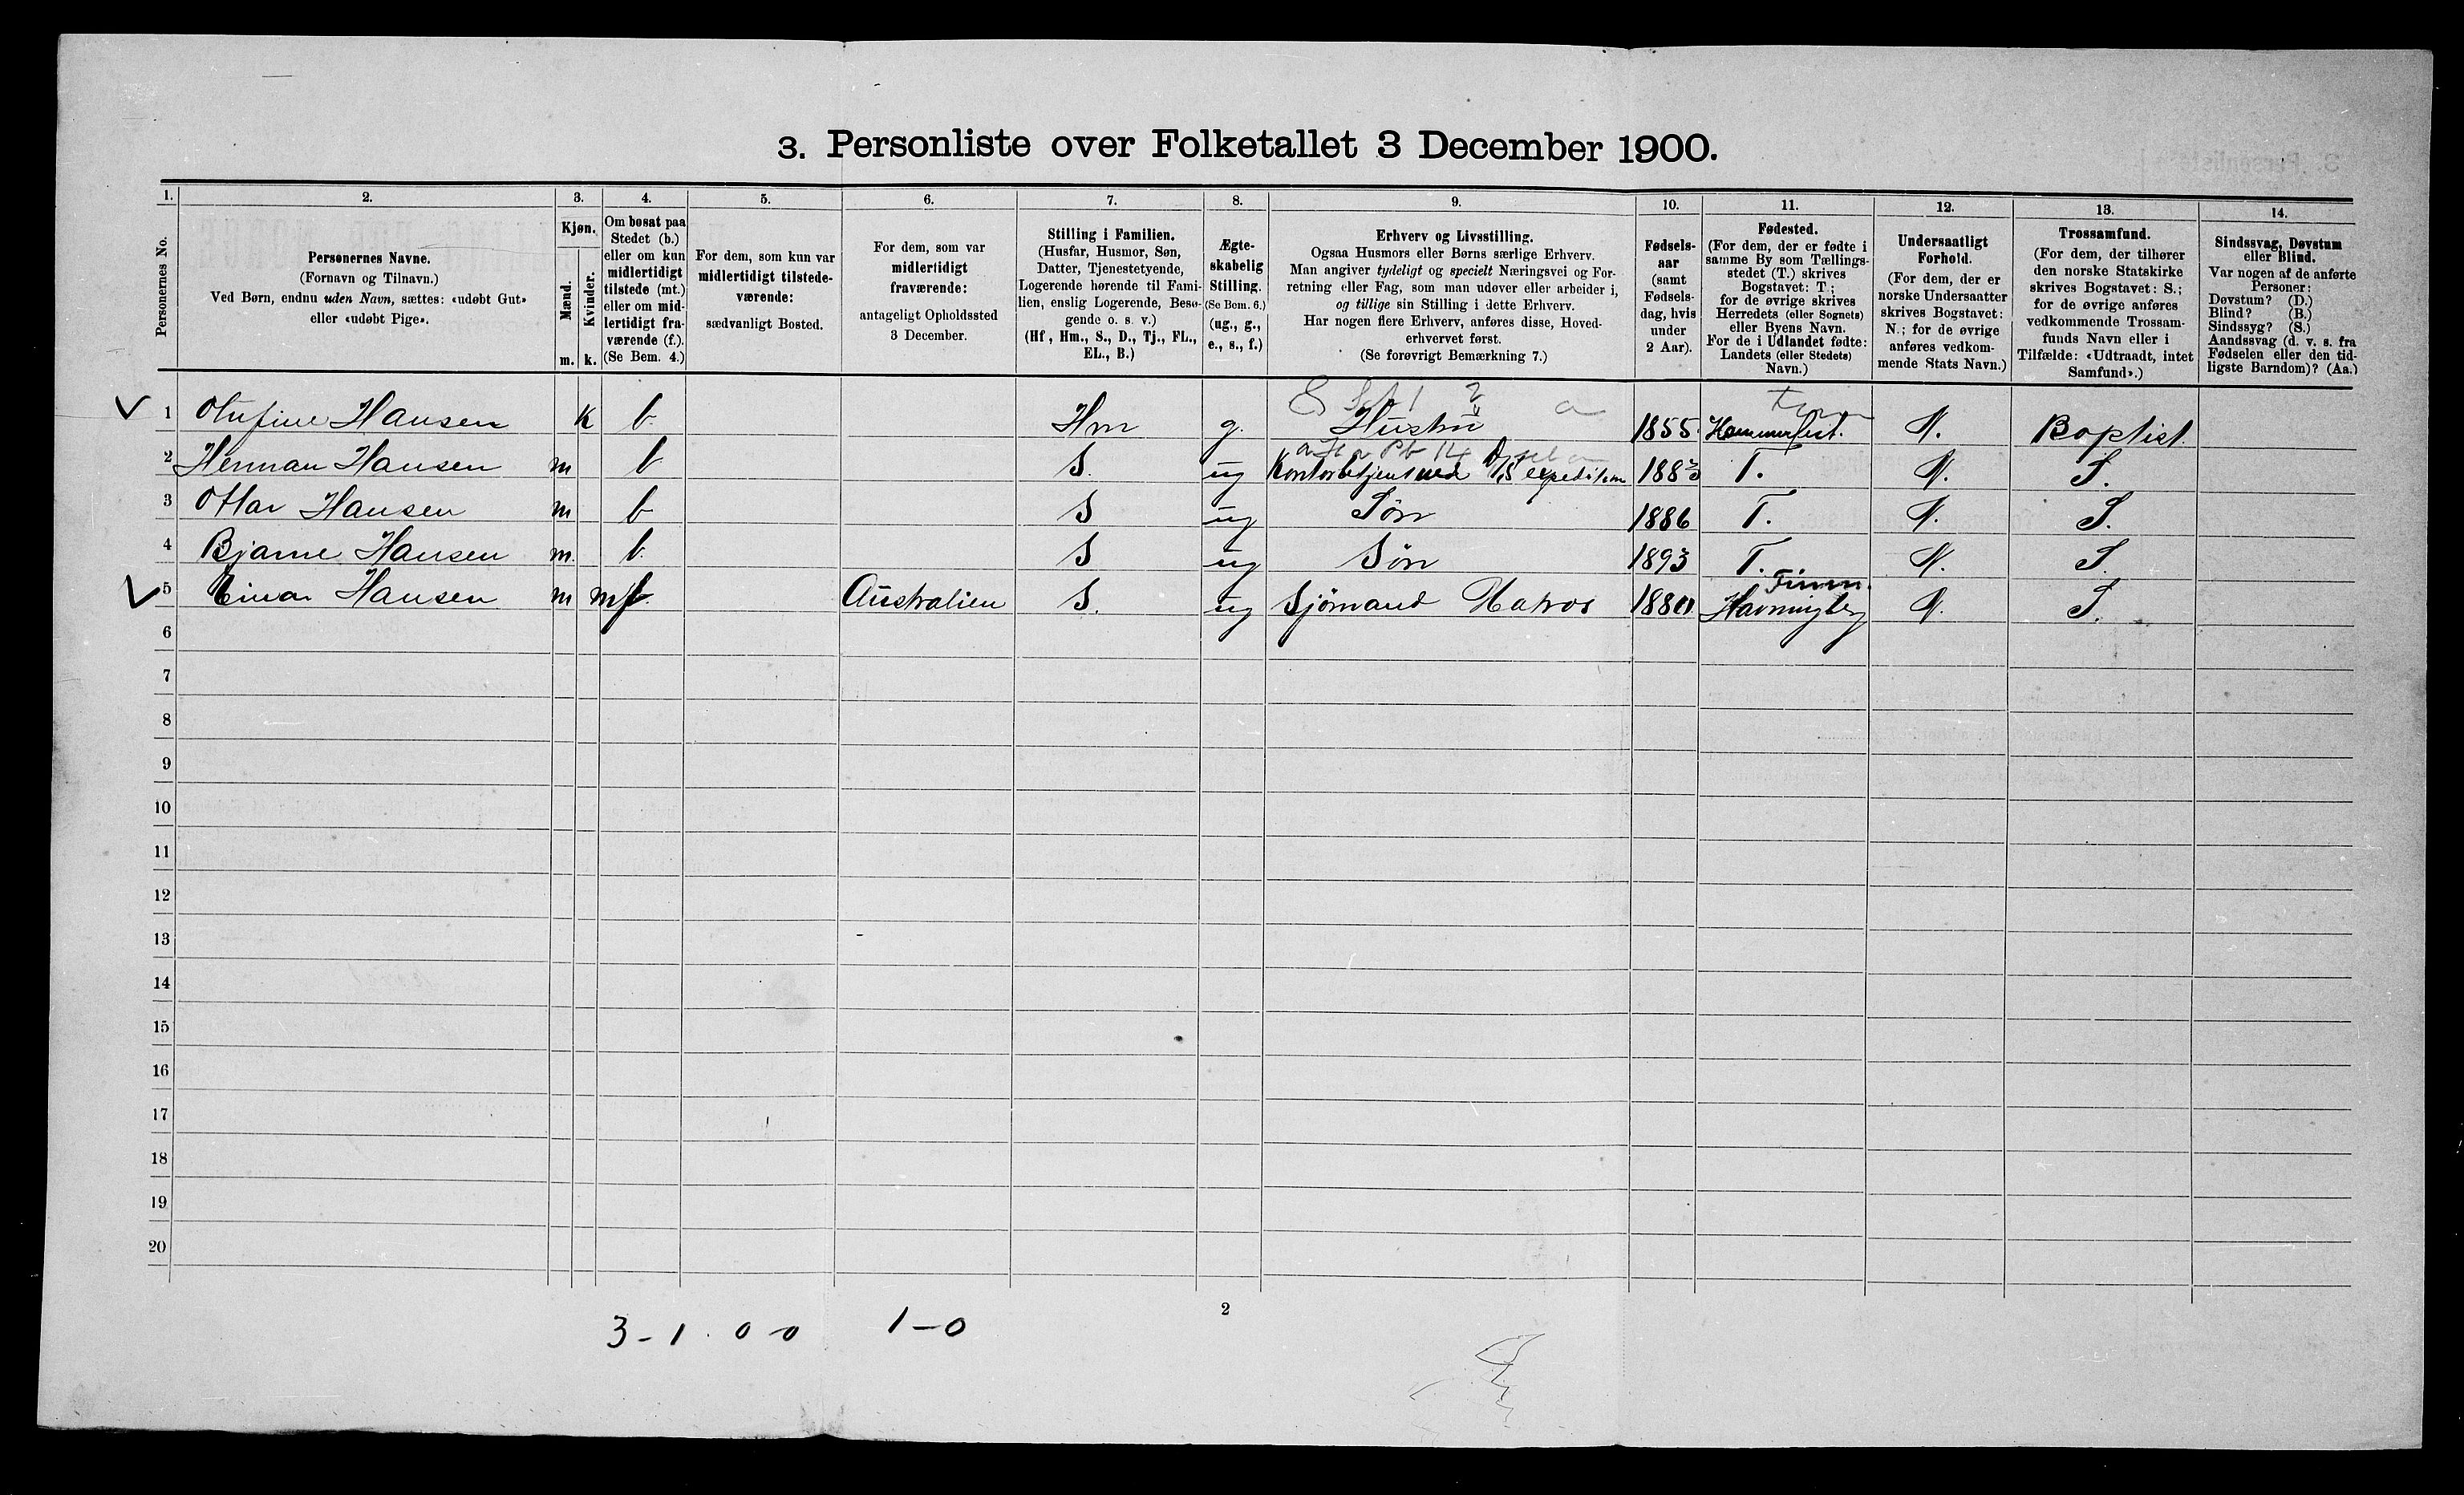 3. Personliste over Folketallet 3 December 1900.
1. 2. 3. 4. 5. 6. 7. 8. 9. 10. 11. 12. 13. 14.
Personernes No.
Personernes Navne.
(Fornavn og Tilnavn.)
Ved Børn, endnu uden Navn, sættes: «udøbt Gut»
eller «udøbt Pige».
Kjøn.
Mænd.
Kvinder.
m. k.
Om bosat paa
Stedet (b.)
eller om kun
midlertidigt
tilstede (mt.)
eller om mid-
lertidigt fra-
værende (f.).
(Se Bem. 4.)
For dem, som kun var
midlertidigt tilstede-
værende:
sædvanligt Bosted.
For dem, som var
midlertidigt
fraværende:
antageligt Opholdssted
3 December.
Stilling i Familien.
(Husfar, Husmor, Søn,
Datter, Tjenestetyende,
Logerende hørende til Fami-
lien, enslig Logerende, Besø-
gende o. s. v.)
(Hf, Hm., S., D., Tj., FL.,
EL., B.)
Ægte-
skabelig
Stilling.
(Se Bem. 6.)
(ug., g.,
e., s., f.)
Erhverv og Livsstilling.
Ogsaa Husmors eller Børns særlige Erhverv.
Man angiver tydeligt og specielt Næringsvei og For-
retning eller Fag, som man udøver eller arbeider i,
og tillige sin Stilling i dette Erhverv.
Har nogen flere Erhverv, anføres disse, Hoved-
erhvervet først.
(Se forøvrigt Bemærkning 7.)
Fødsels-
aar
(samt
Fødsels-
dag, hvis
under
2 Aar).
Fødested.
(For dem, der er fødte i
samme By som Tællings-
stedet (T.) skrives
Bogstavet: T.;
for de øvrige skrives
Herredets (eller Sognets)
eller Byens Navn.
For de i Udlandet fødte:
Landets (eller Stedets)
Navn.)
Undersaatligt
Forhold.
(For dem, der er
norske Undersaatter
skrives Bogstavet:
N.; for de øvrige
anføres vedkom-
mende Stats Navn.)
Trossamfund.
(For dem, der tilhører
den norske Statskirke
skrives Bogstavet: S.;
for de øvrige anføres
vedkommende Trossam-
funds Navn eller i
Tilfælde: «Udtraadt, intet
Samfund».)
Sindssvag, Døvstum
eller Blind.
Var nogen af de anførte
Personer:
Døvstum? (D.)
Blind? (B.)
Sindssyg? (S.)
Aandssvag (d. v. s. fra
Fødselen eller den tid-
ligste Barndom)? (Aa.)
1 Olufine Hansen k b. Hm g. Hustru 1855. Hammerfest. N. Baptist
2 Herman Hansen m b. S. ug Kontorbetjent ved D/S expedition 1883 T. N. S.
3 Ottar Hansen m b S ug Søn 1886 T. N. S.
4 Bjarne Hansen m. b. S ug Søn 1893 T. N. S.
Finm.
5 Einar Hansen m f Australien S. ug Sjømand Matros 1880. Havningberg N. S.
6
7
8
9
10
11
12
13
14
15
16
17
18
19
20
2
3 - 1 . 0 - 0 1 - 0